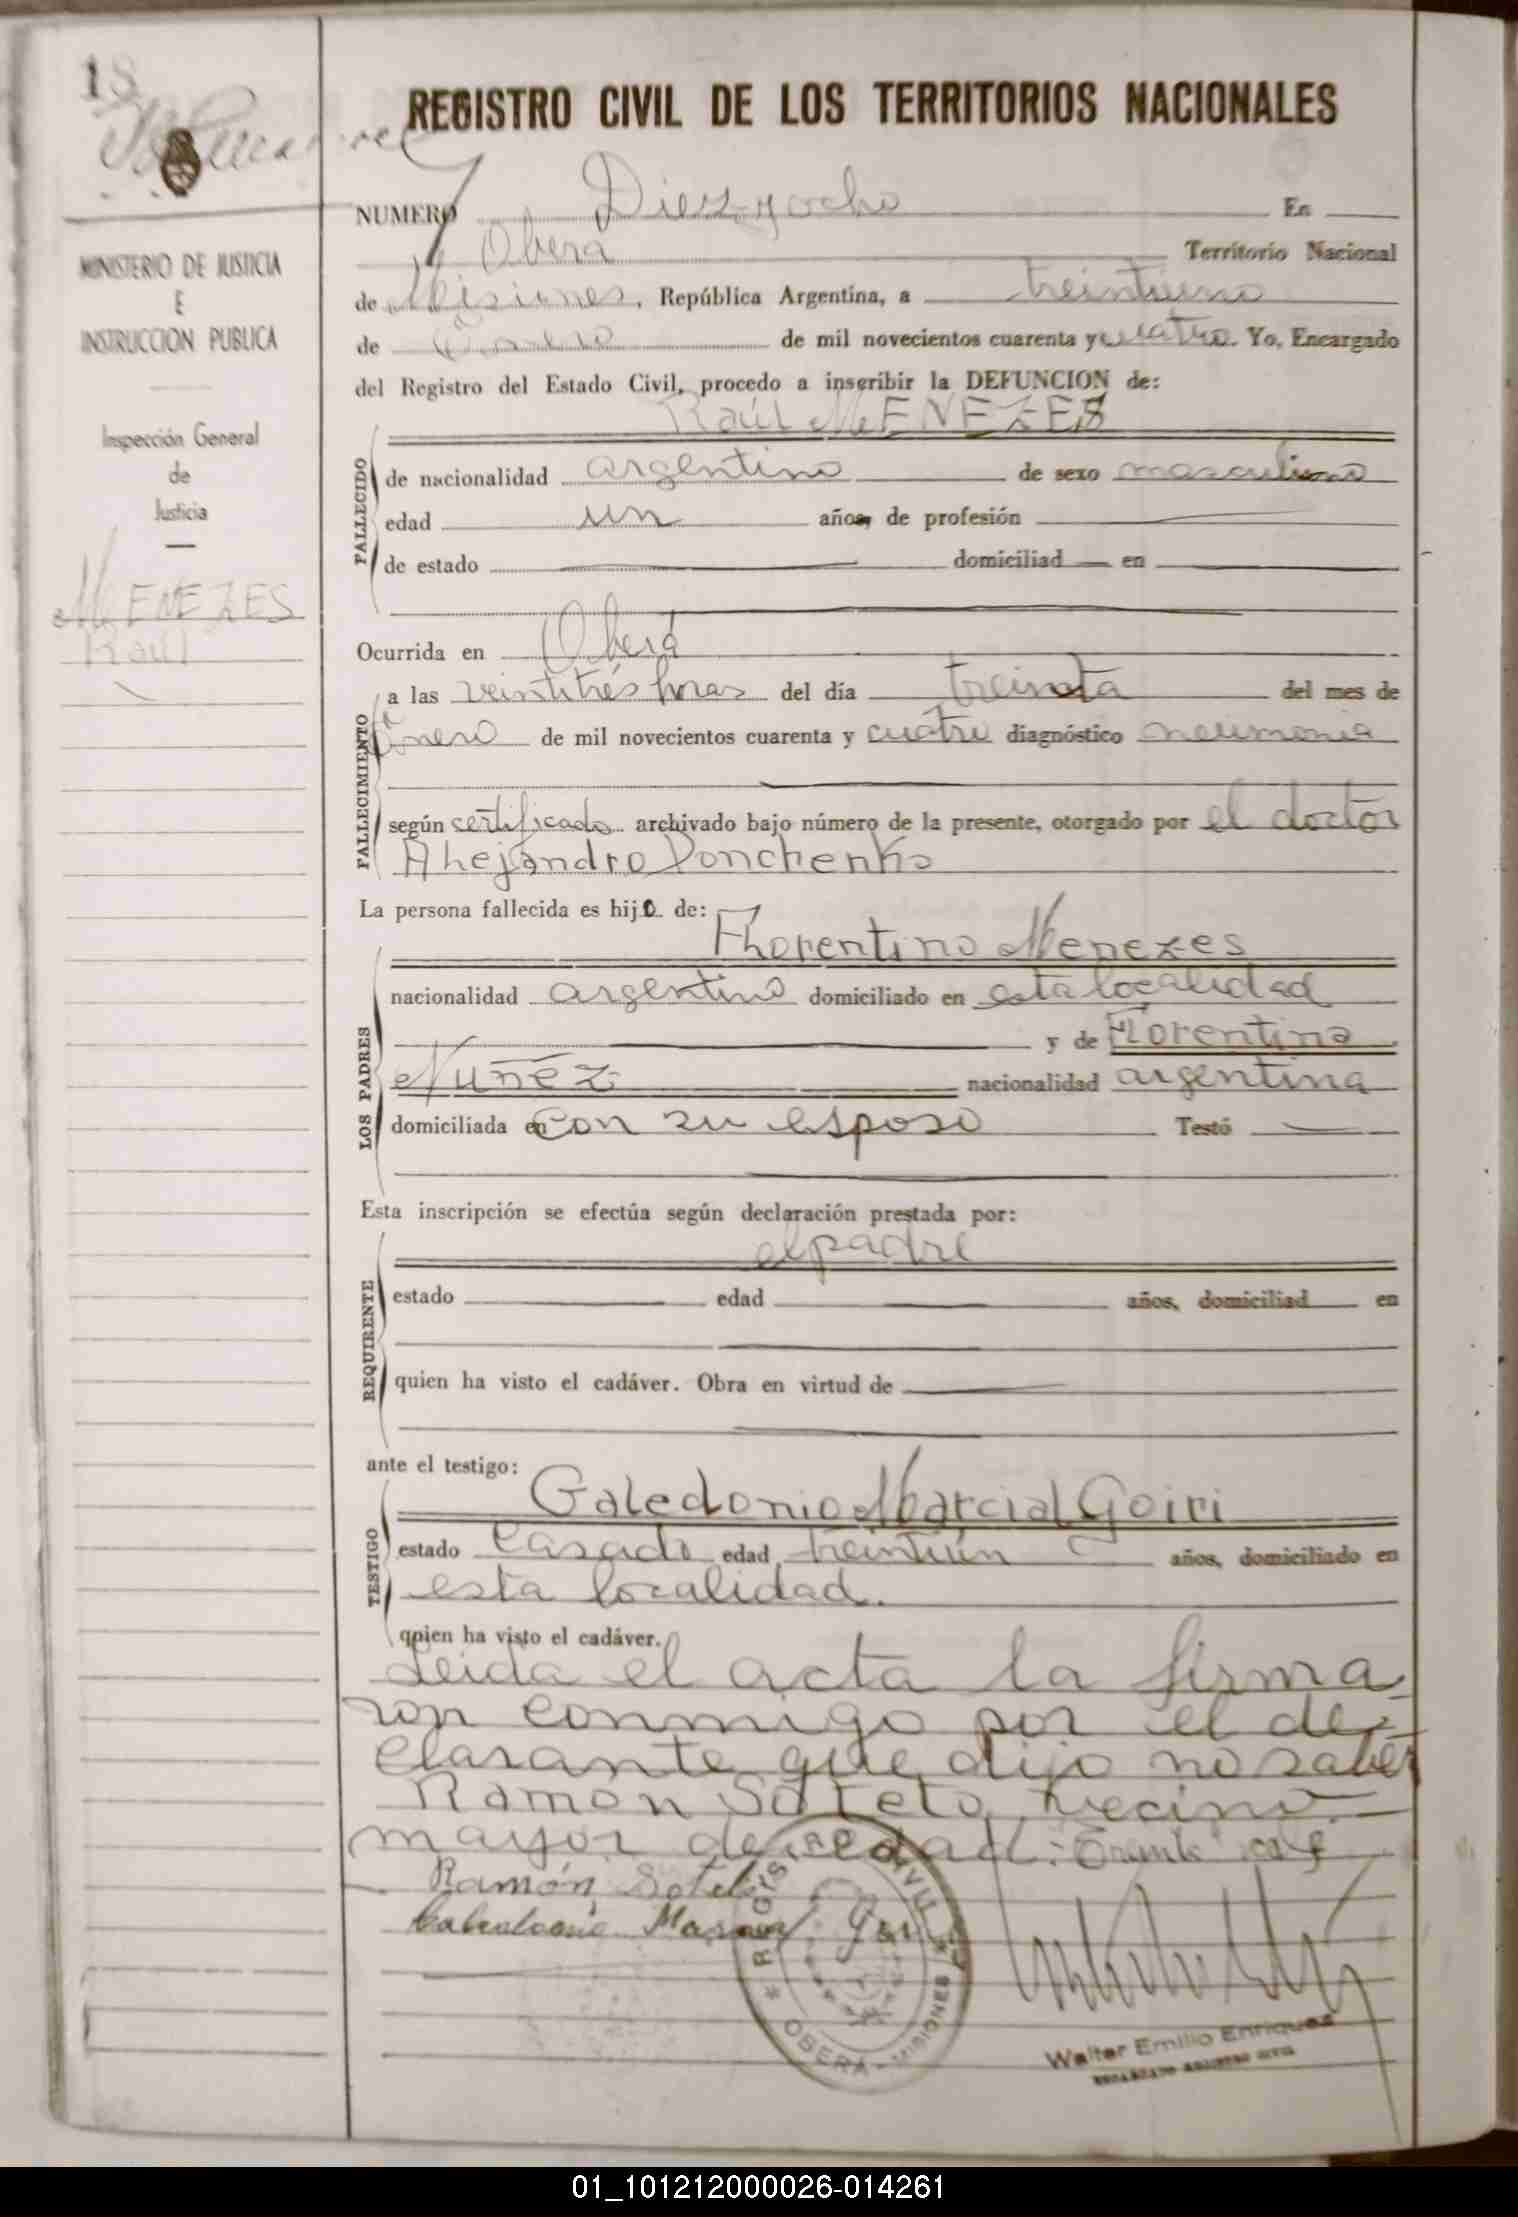 18
REGISTRO CIVIL DE LOS TERRITORIOS NACIONALES
MINISTERIO DE JUSTICIA
E
INSTRUCCION PUBLICA
Inspección General
de
Justicia
MENEZES
Raúl
NUMERO Diez y ocho En
Oberá Territorio Nacional
de Misiones, República Argentina, a treintiuno
de Enero de mil novecientos cuarenta y cuatro. Yo, Encargado
del Registro del Estado Civil, procedo a inscribir la DEFUNCION de:
Raúl MENEZES
FALLECIDO
de nacionalidad argentino de sexo masculino
edad un años, de profesión
de estado domiciliad en
Ocurrida en Oberá
FALLECIMIENTO
a las veintitrés horas del día treinta del mes de
Enero de mil novecientos cuarenta y cuatro diagnóstico neumonia
según certificado archivado bajo número de la presente, otorgado por el doctor
Alejandro
La persona fallecida es hijo de:
LOS PADRES
Florentino Menezes
nacionalidad argentino domiciliado en esta localidad
y de Florentina
Nuñez nacionalidad argentina
domiciliada en con su esposo Testó
Esta inscripción se efectúa según declaración prestada por:
REQUIRENTE
el padre
estado edad años, domiciliad en
quien ha visto el cadáver. Obra en virtud de
ante el testigo:
TESTIGO
Galedonio Marcial Goiri
estado casado edad treintiún años, domiciliado en
esta localidad.
quien ha visto el cadáver.
Leida el acta la firma
ron conmigo por el de-
clarante que dijo no saber
Ramón Sotelo, vecino
mayor de edad.-
Ramón Sotelo
REGISTRO CIVIL
OBERÁ - MISIONES
Walter Emilio Enriquez
ENCARGADO REGISTRO CIVIL
01_101212000026-014261